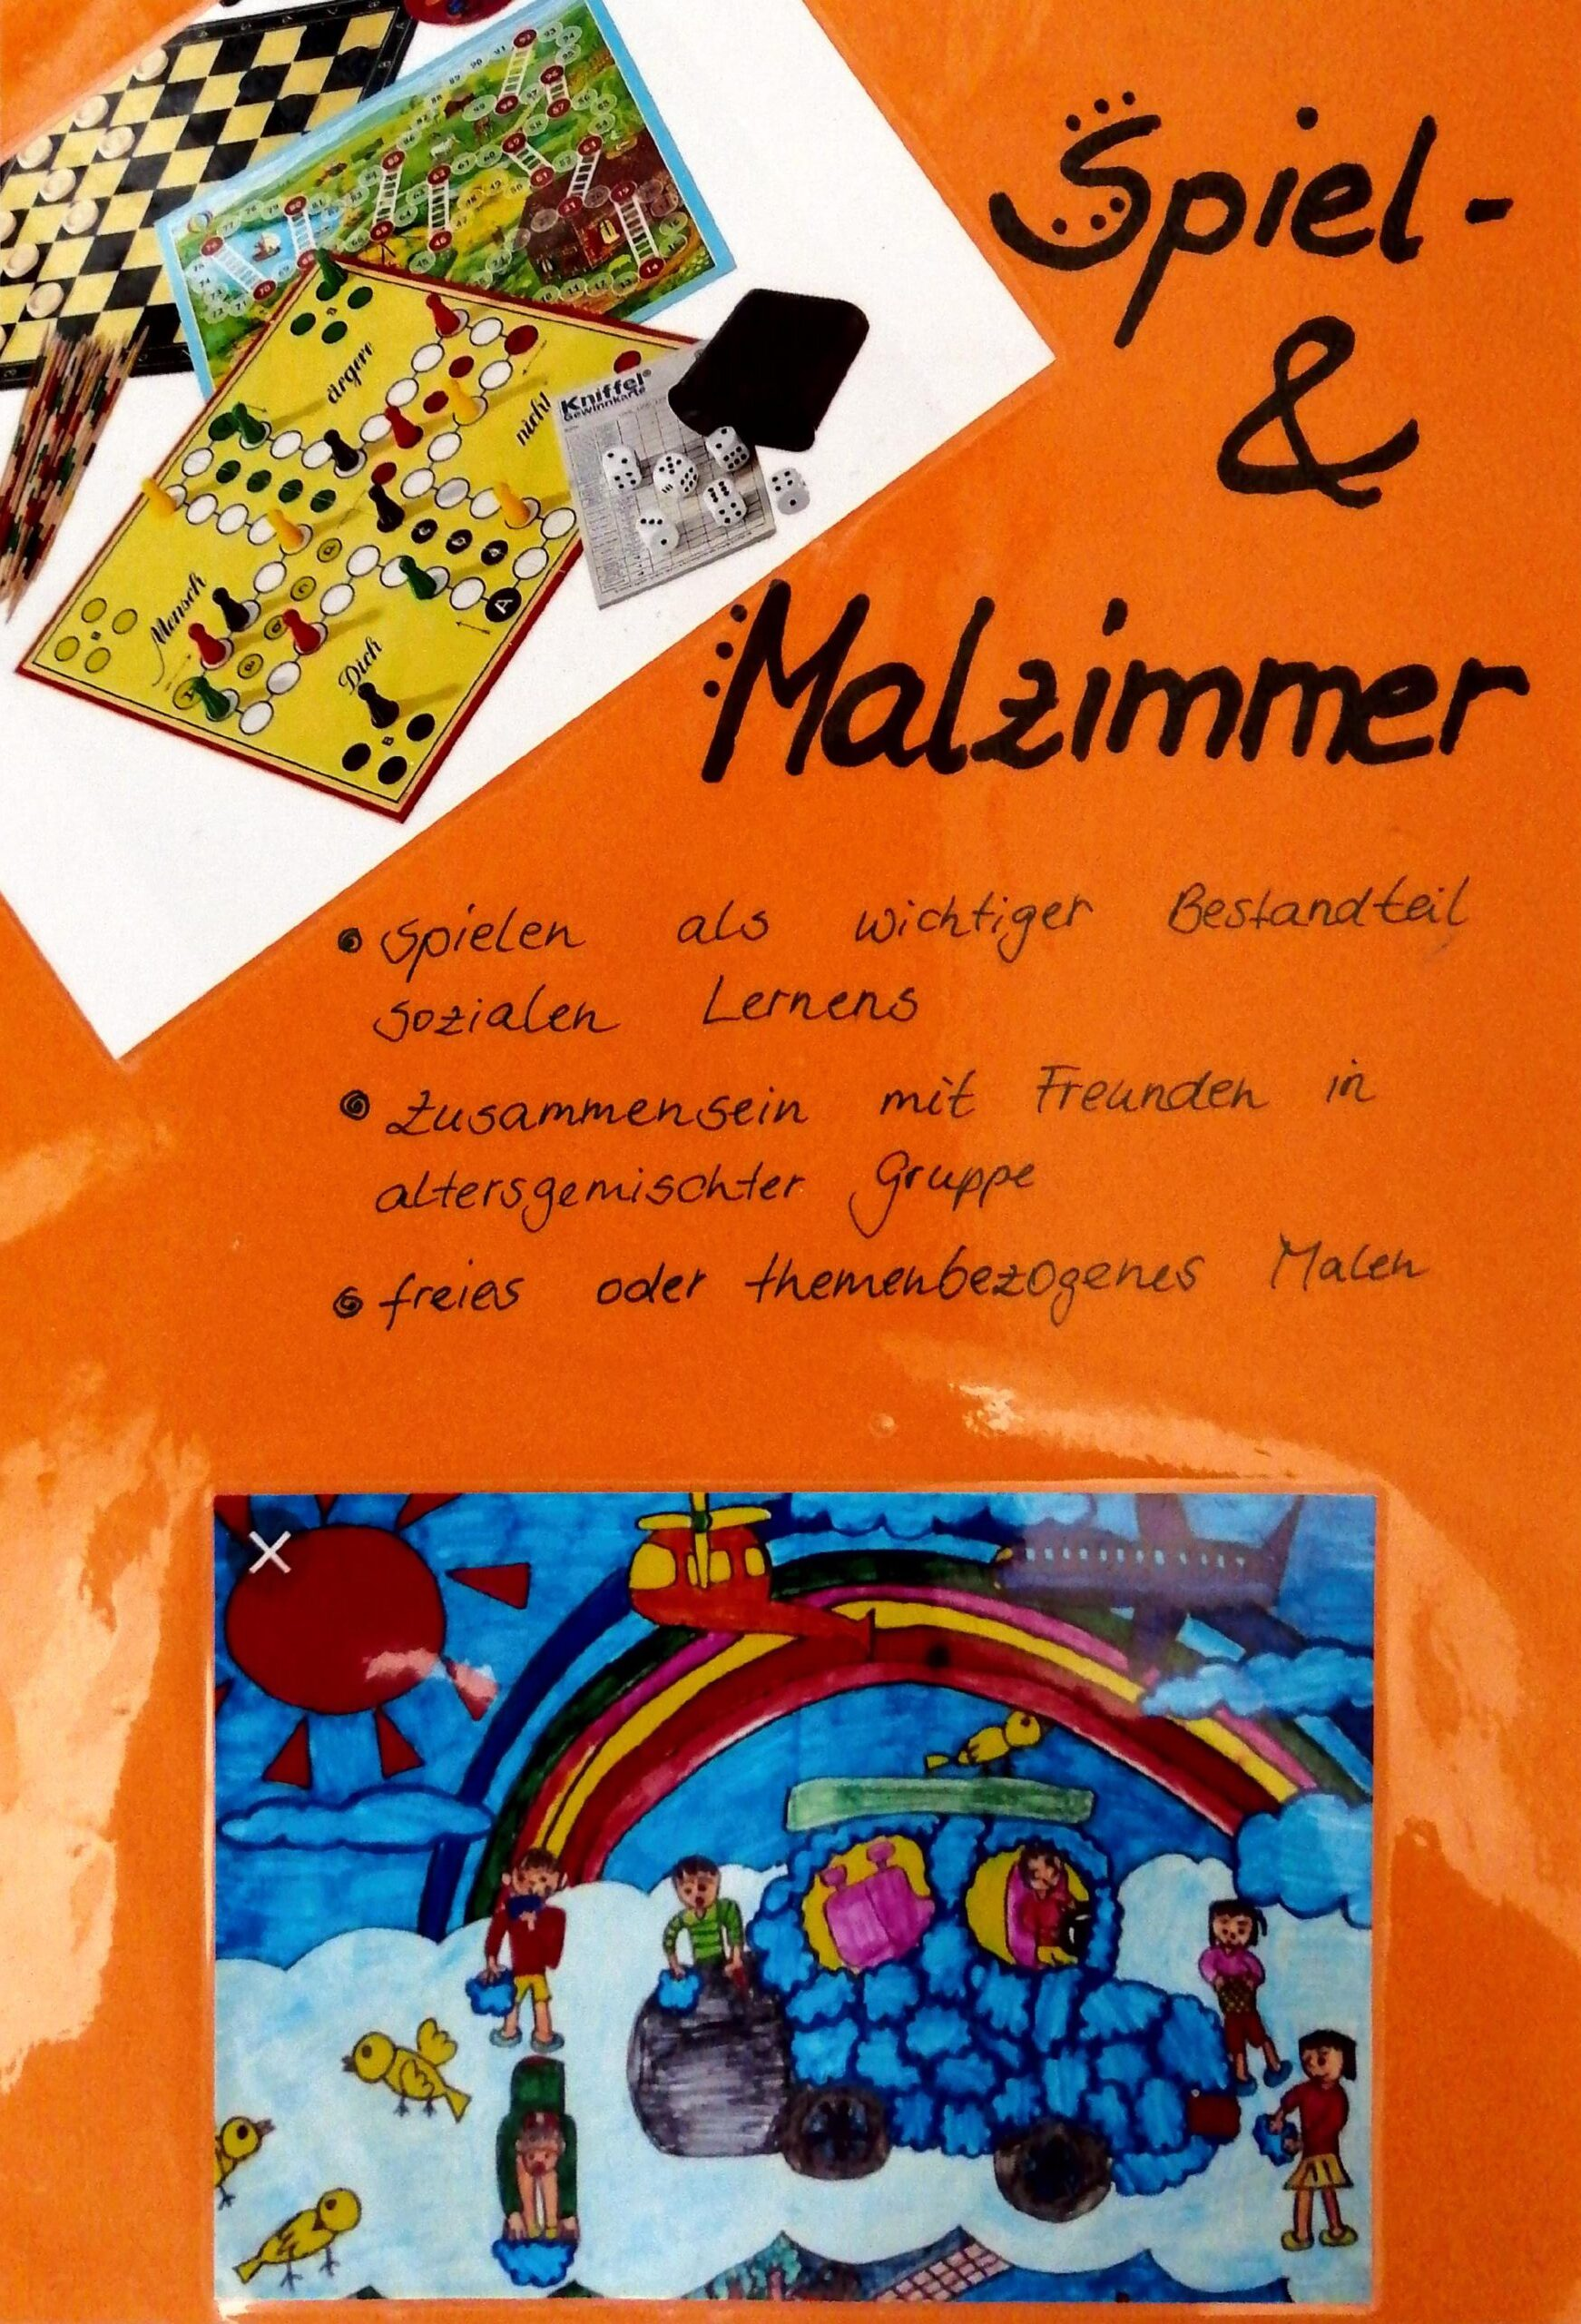 Spiel-
&
Malzimmer
ärgere
nicht
Kniffel®
Gewinnkarte
Mensch
Dich
A
spielen als wichtiger Bestandteil
sozialen Lernens
Zusammensein mit Freunden in
altersgemischter Gruppe
freies oder themenbezogenes Malen